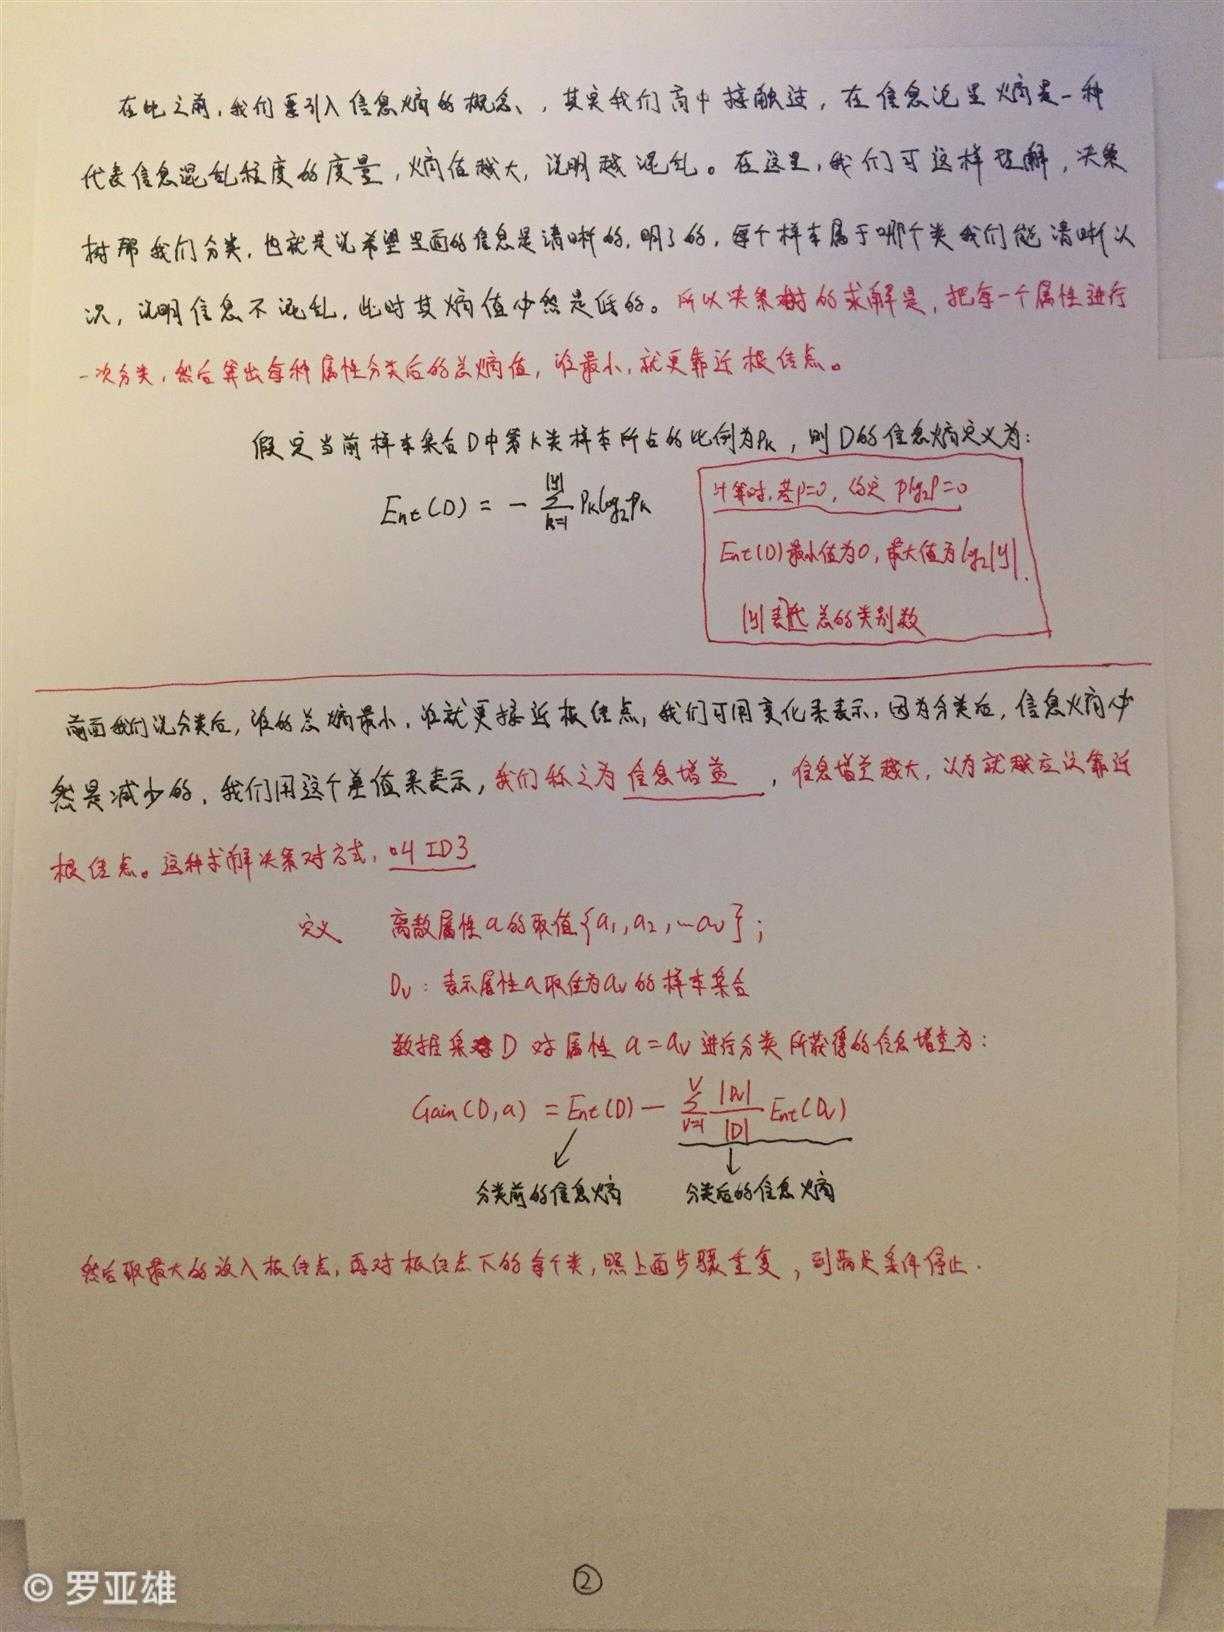 在此之前,我们要引入信息熵的概念,其实我们高中接触过,在信息论里熵是一种
代表信息混乱程度的度量,熵值越大,说明越混乱。在这里,我们可这样理解,决策
树帮我们分类,也就是说希望里面的信息是清晰的,明了的,每个样本属于哪个类我们能清晰认
识,说明信息不混乱,此时其熵值必然是低的。所以决策树的求解是,把每一个属性进行
一次分类,然后算出每种属性分类后的总熵值,谁最小,就更靠近根结点。
假定当前样本集合D中第K类样本所占的比例为Pₖ,则D的信息熵定义为:
Ent(D) = - ∑_{k=1}^{|y|} Pₖlog₂Pₖ
计算时,若p=0,约定 plog₂p=0
Ent(D)最小值为0,最大值为log₂|y|.
|y|表代总的类别数
前面我们说分类后,谁的总熵最小,谁就更接近根结点,我们可用变化来表示,因为分类后,信息熵必
然是减少的,我们用这个差值来表示,我们称之为信息增益,信息增益越大,认为就越应该靠近
根结点。这种求解决策对方式,叫ID3
定义 离散属性a的取值{a₁,a₂,…aᵥ};
Dᵥ:表示属性a取值为aᵥ的样本集合
数据集D对属性a=aᵥ进行分类所获得的信息增益为:
Gain(D,a) = Ent(D) - ∑_{v=1}^{V} |Dᵥ|/|D| Ent(Dᵥ)
分类前的信息熵 分类后的信息熵
然后取最大的放入根结点,再对根结点下的每个类,照上面步骤重复,到满足条件停止.
②
© 罗亚雄